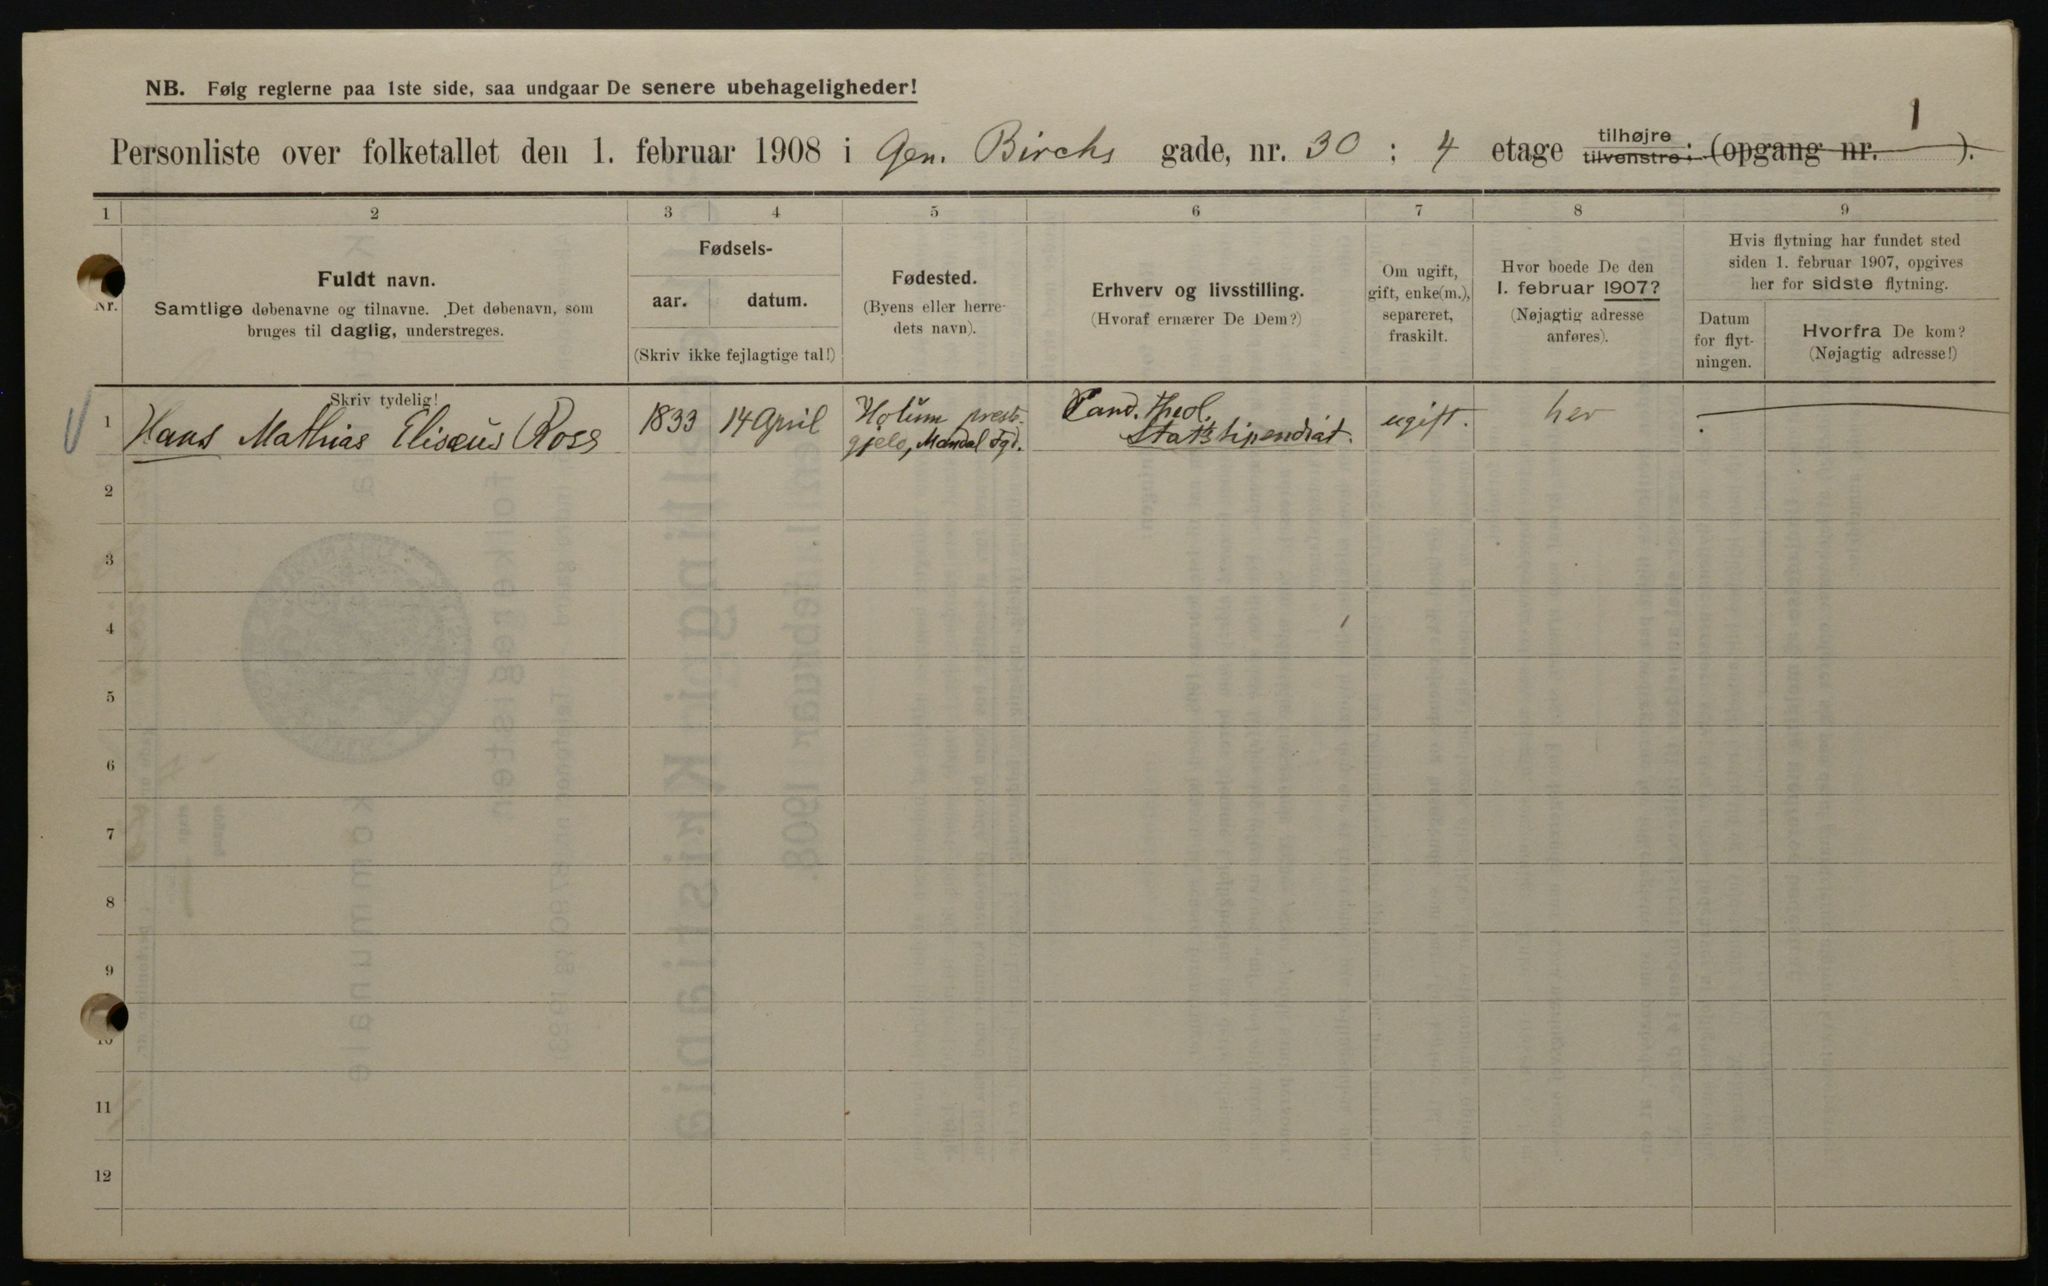 NB. Følg reglerne paa 1ste side, saa undgaar De senere ubehageligheder!
1
Personliste over folketallet den 1. februar 1908 i Gen. Birchs gade, nr. 30 ; 4 etage tilhøjre tilvenstre; (opgang nr. ).
1 2 3 4 5 6 7 8 9
Nr.
Fuldt navn.
Samtlige døbenavne og tilnavne. Det døbenavn, som
bruges til daglig, understreges.
Skriv tydelig!
Fødsels-
aar. datum.
(Skriv ikke fejlagtige tal!)
Fødested.
(Byens eller herre-
dets navn).
Erhverv og livsstilling.
(Hvoraf ernærer De Dem?)
Om ugift,
gift, enke(m.),
separeret,
fraskilt.
Hvor boede De den
1. februar 1907?
(Nøjagtig adresse
anføres).
Hvis flytning har fundet sted
siden 1. februar 1907, opgives
her for sidste flytning.
Datum
for flyt-
ningen.
Hvorfra De kom?
(Nøjagtig adresse!)
1 Hans Mathias Elisæus Ross 1833 14 April Holum prest-
gjeld, Mandal Fgd. Cand. theol.
Statsstipendiat. ugift. her
2
3
4
5
6
7
8
9
10
11
12